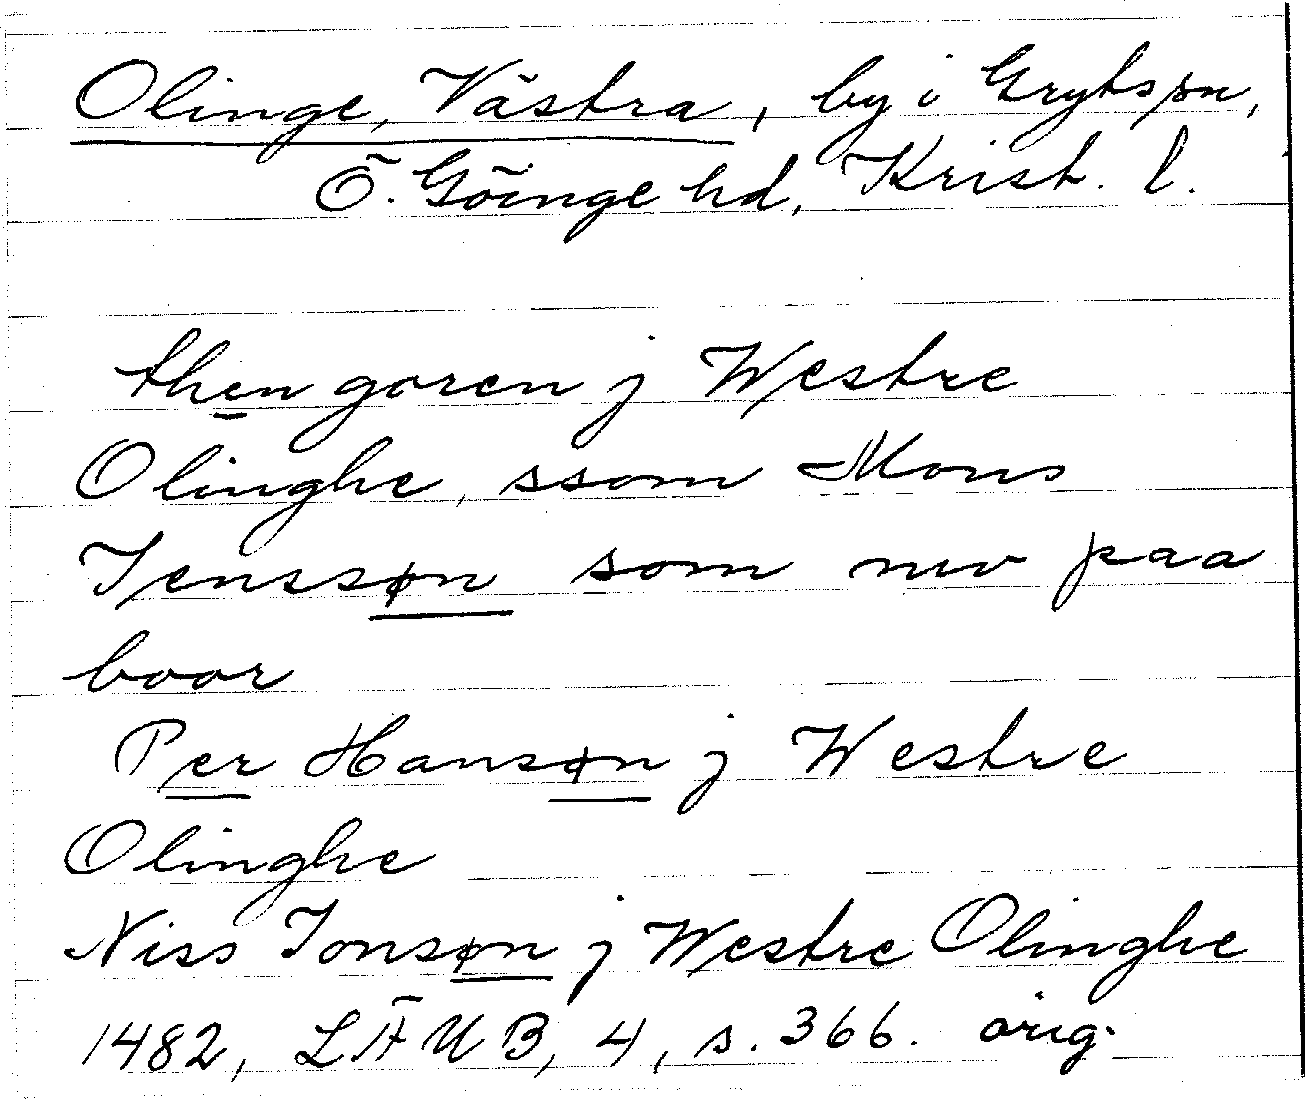 Olinge, Västra, by i Gryts sn,
Ö. Göinge hd, Krist. l.
then goren j Westre
Olinghe, ssom Mons
Jenssøn som nw paa
boor
Per Hansøn j Westre
Olinghe
Niss Jonsøn j Westre Olinghe
1482, LÄUB, 4, s. 366. orig.